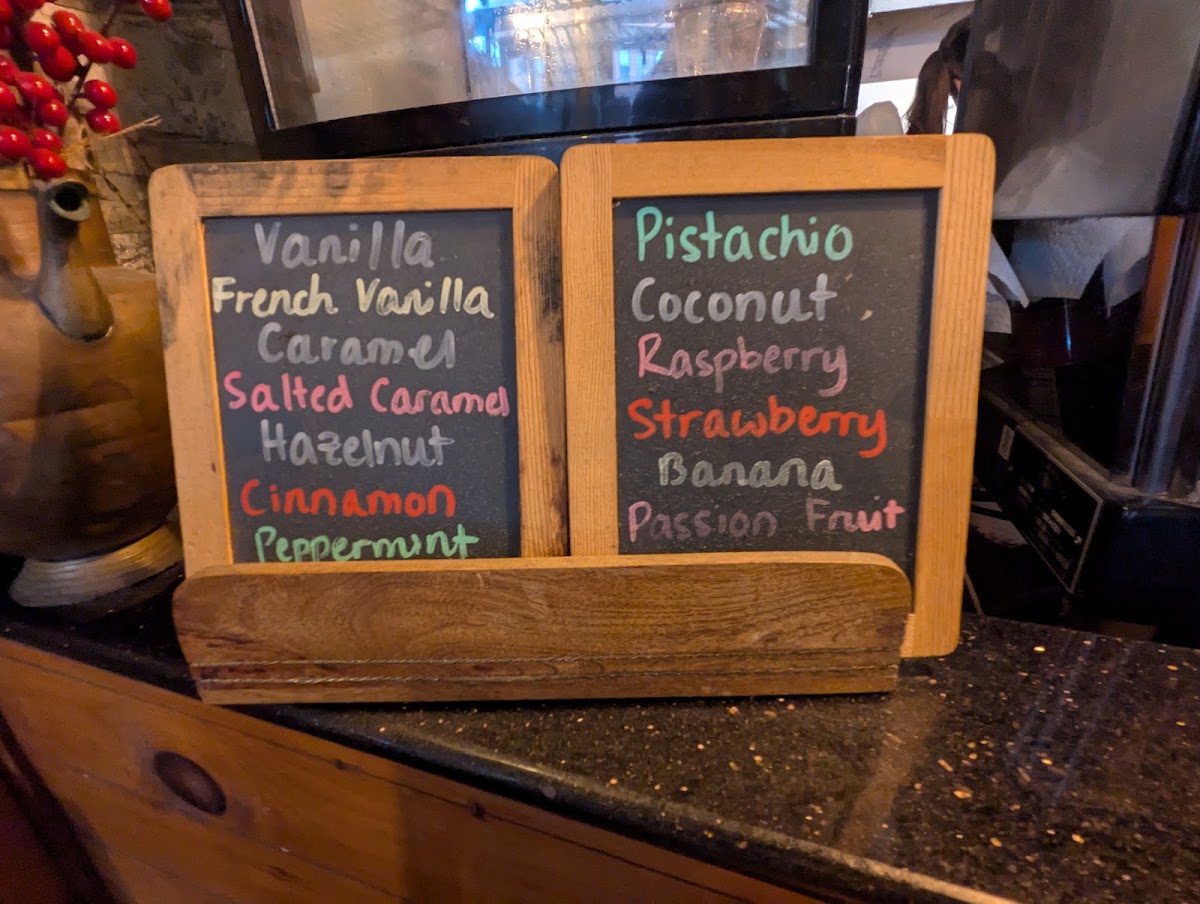 Vanilla
French Vanilla
Caramel
Salted Caramel
Hazelnut
Cinnamon
Peppermint
Pistachio
Coconut
Raspberry
Strawberry
Banana
Passion Fruit